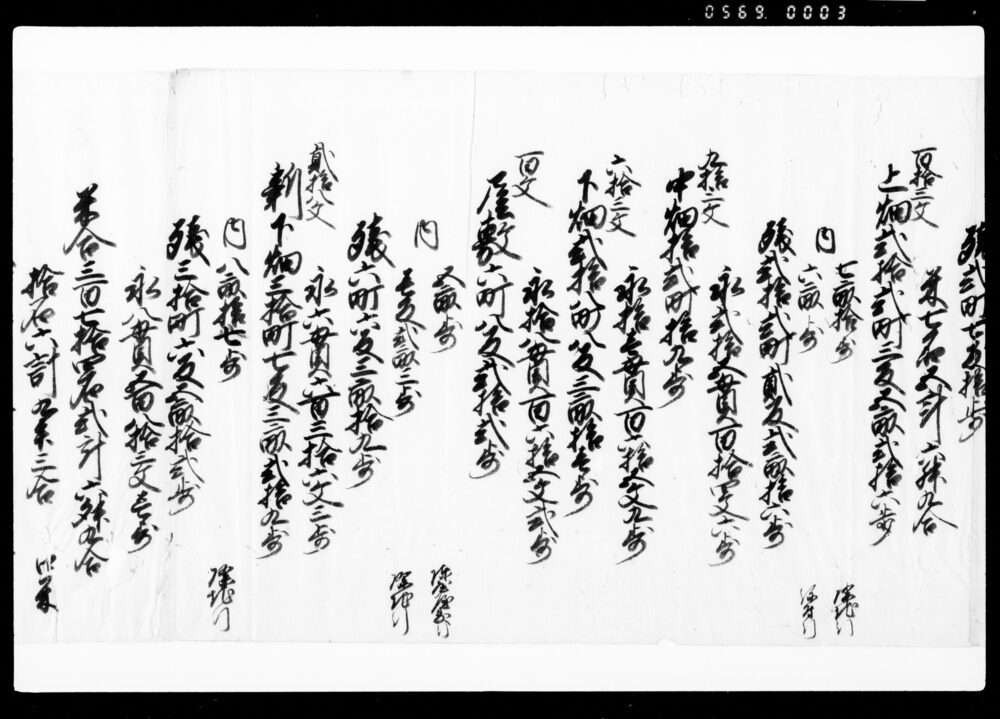 0569. 0003
残弐町七反拾歩
米七石五斗六升九合
百拾三文
上畑弐拾弐町三反五畝弐拾六歩
内
七畝拾歩
六畝歩
残弐拾弐町弐反弐畝拾六歩
永弐拾五貫百拾四文六分
九拾三文
中畑拾弐町拾九歩
永拾壱貫百六拾五文九分
六拾三文
下畑弐拾八町八反三畝拾壱歩
永拾八貫百六拾五文弐分
百文
屋敷六町八反弐拾弐歩
内
五畝歩
壱反弐畝三歩
残六町六反三畝拾九歩
永六貫六百三拾六文三分
弐拾八文
新下畑三拾町七反三畝弐拾九歩
内
八畝拾七歩
残三拾町六反五畝拾弐歩
永八貫五百八拾三文壱分
米合三百七拾四石弐斗六升九合
拾石六斗九升三合